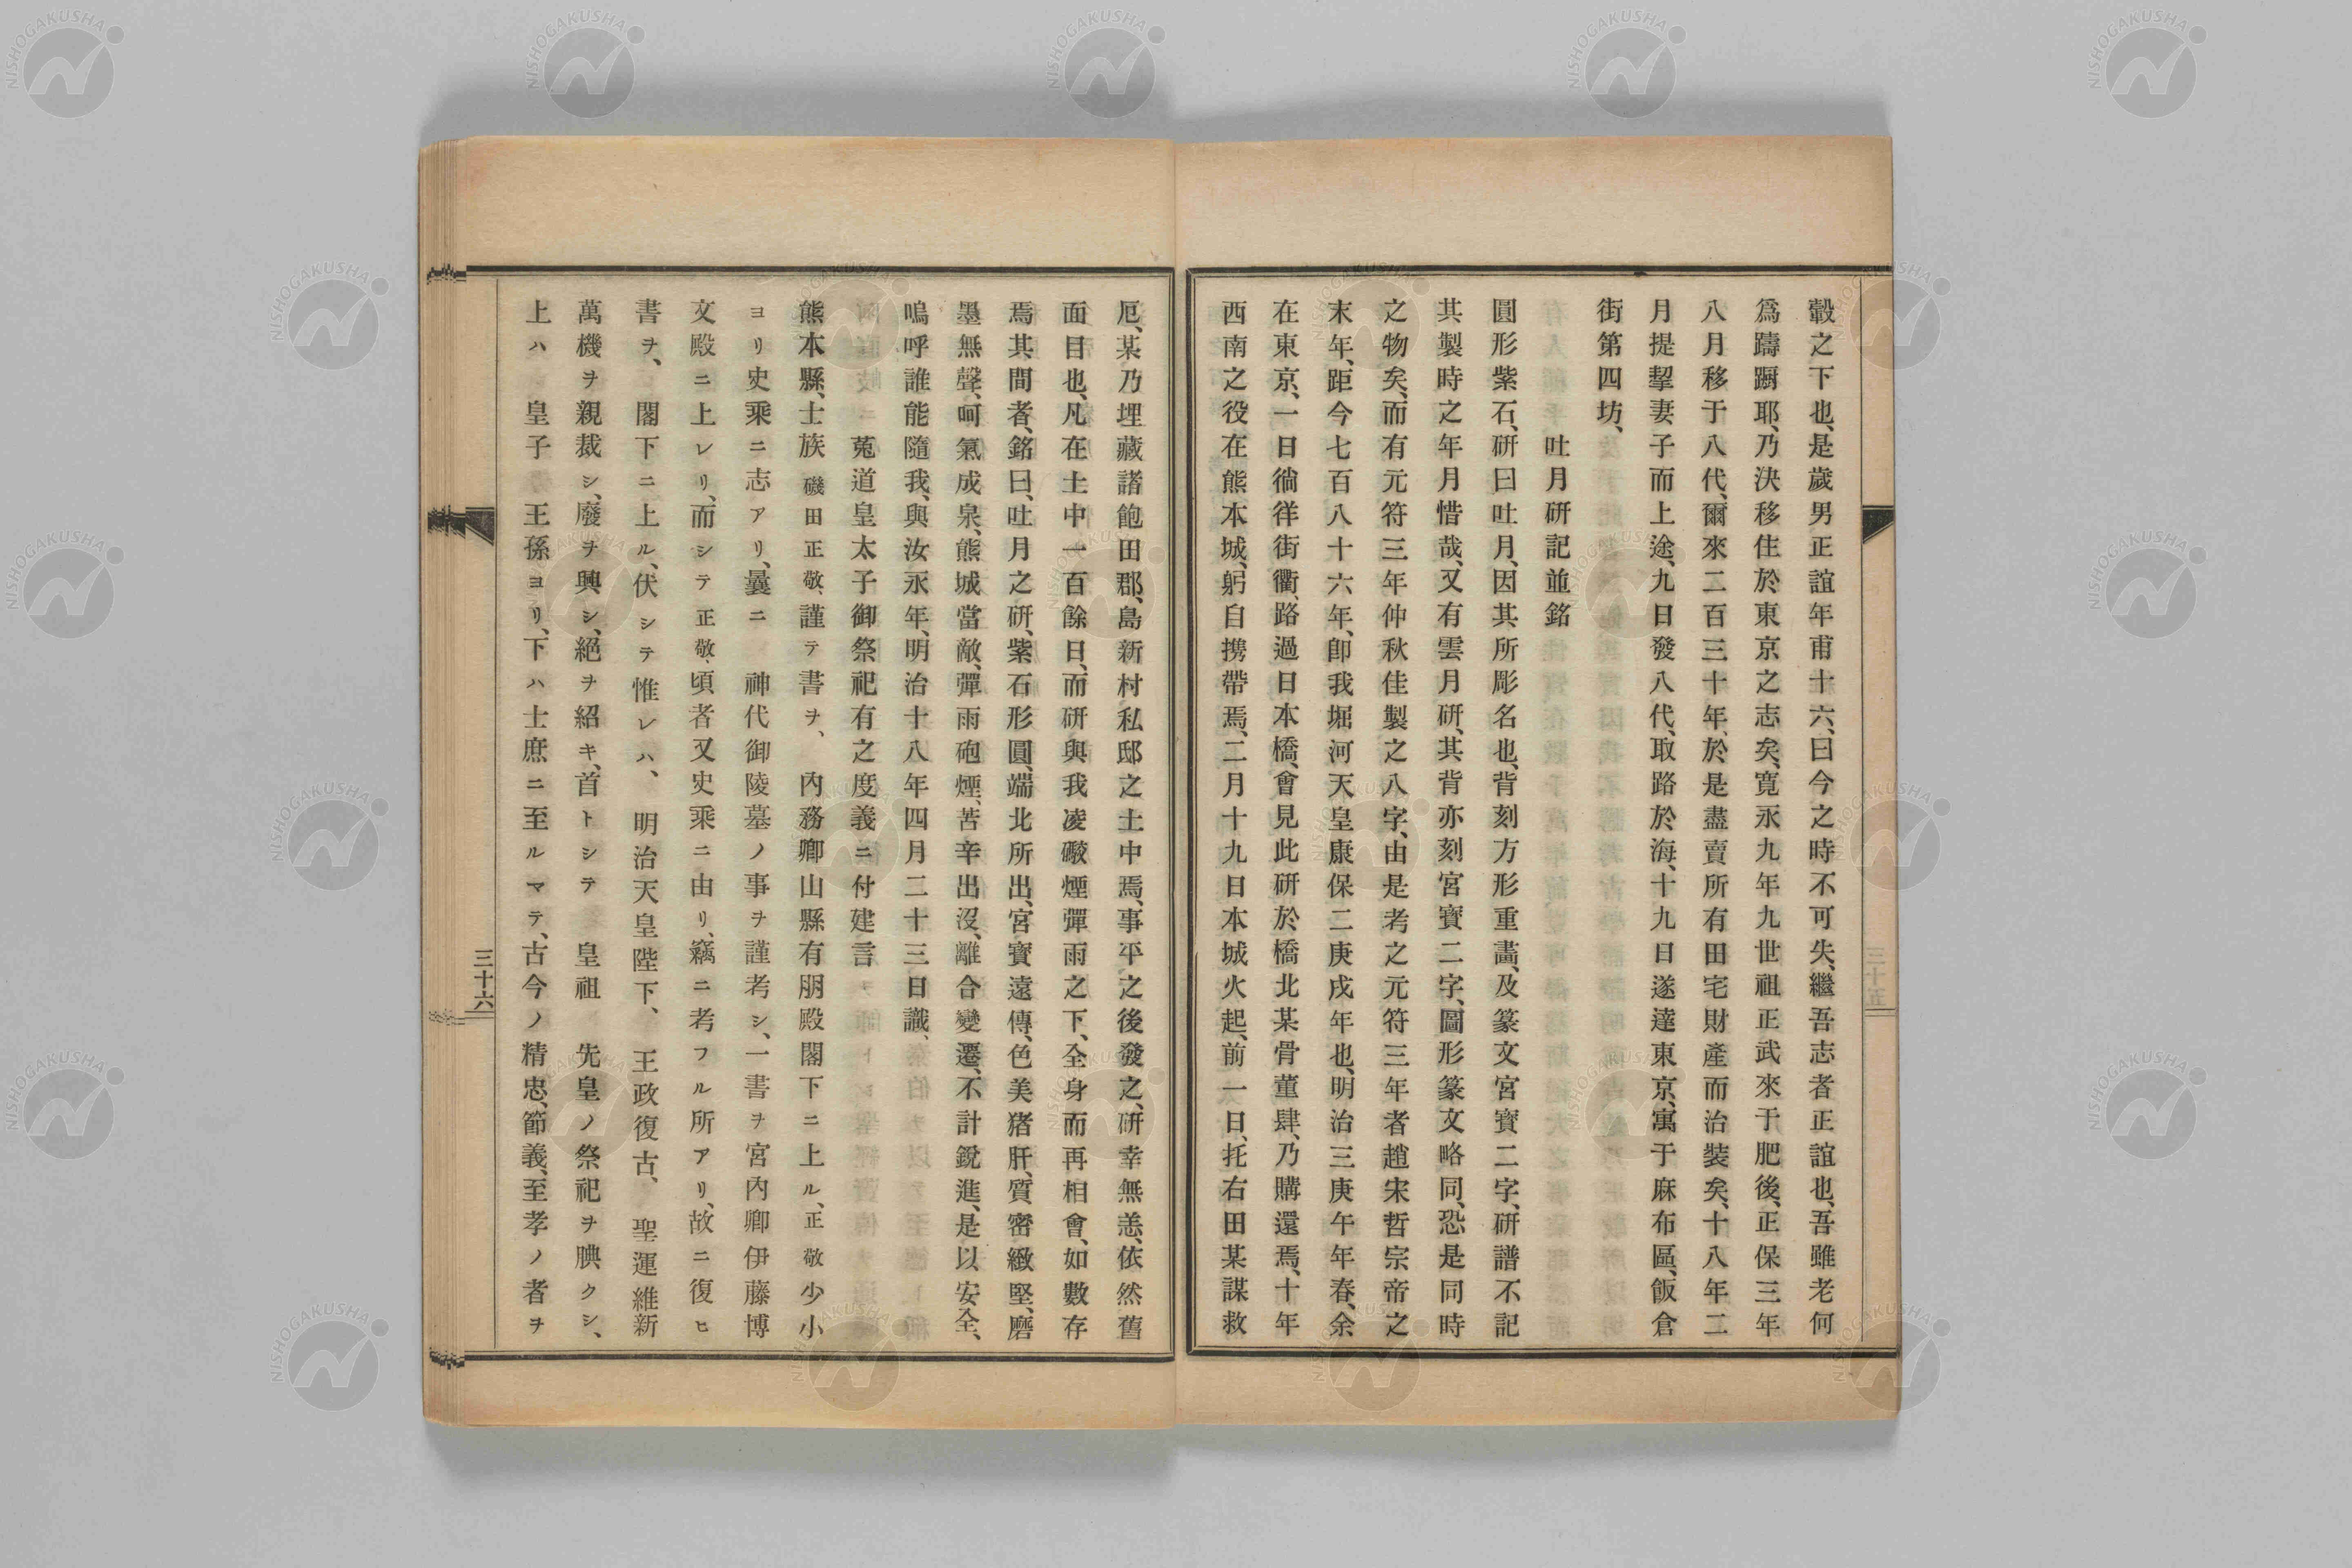 轂之下也、是歲男正誼年甫十六、曰今之時不可失、繼吾志者正誼也、吾雖老何
爲躊躕耶、乃決移住於東京之志矣、寬永九年九世祖正武來于肥後、正保三年
八月移于八代、爾來二百三十年、於是盡賣所有田宅財產而治裝矣、十八年二
月提挈妻子而上途、九日發八代、取路於海、十九日遂達東京、寓于麻布區、飯倉
街第四坊、
吐月研記並銘
圓形紫石、研曰吐月、因其所彫名也、背刻方形重畵、及篆文宮寶二字、研譜不記
其製時之年月惜哉、又有雲月研、其背亦刻宮寶二字、圖形篆文略同、恐是同時
之物矣、而有元符三年仲秋佳製之八字、由是考之元符三年者趙宋哲宗帝之
末年、距今七百八十六年、卽我堀河天皇康保二庚戌年也、明治三庚午年春、余
在東京、一日徜徉街衢、路過日本橋、會見此研於橋北某骨董肆、乃購還焉、十年
西南之役在熊本城、躬自携帶焉、二月十九日本城火起、前一日、托右田某謀救
三十五
厄、某乃埋藏諸飽田郡、島新村私邸之土中焉、事平之後發之、研幸無恙、依然舊
面目也、凡在土中一百餘日、而研與我凌礮煙彈雨之下、全身而再相會、如數存
焉其間者、銘曰、吐月之研、紫石形圓、端北所出、宮寶遠傳、色美猪肝、質密緻堅、磨
墨無聲、呵氣成泉、熊城當敵、彈雨砲煙、苦辛出沒、離合變遷、不計銳進、是以安全、
嗚呼誰能隨我、與汝永年、明治十八年四月二十三日識、
菟道皇太子御祭祀有之度義ニ付建言
熊本縣、士族磯田正敬、謹テ書ヲ、內務卿山縣有朋殿閣下ニ上ル、正敬少小
ヨリ史乘ニ志アリ、曩ニ 神代御陵墓ノ事ヲ謹考シ、一書ヲ宮內卿伊藤博
文殿ニ上レリ、而シテ正敬、頃者又史乘ニ由リ、竊ニ考フル所アリ、故ニ復ヒ
書ヲ、 閣下ニ上ル、伏シテ惟レハ、 明治天皇陛下、 王政復古、 聖運維新
萬機ヲ親裁シ、廢ヲ興シ、絕ヲ紹キ、首トシテ 皇祖 先皇ノ祭祀ヲ腆クシ、
上ハ 皇子 王孫ヨリ、下ハ士庶ニ至ルマテ、古今ノ精忠、節義、至孝ノ者ヲ
三十六